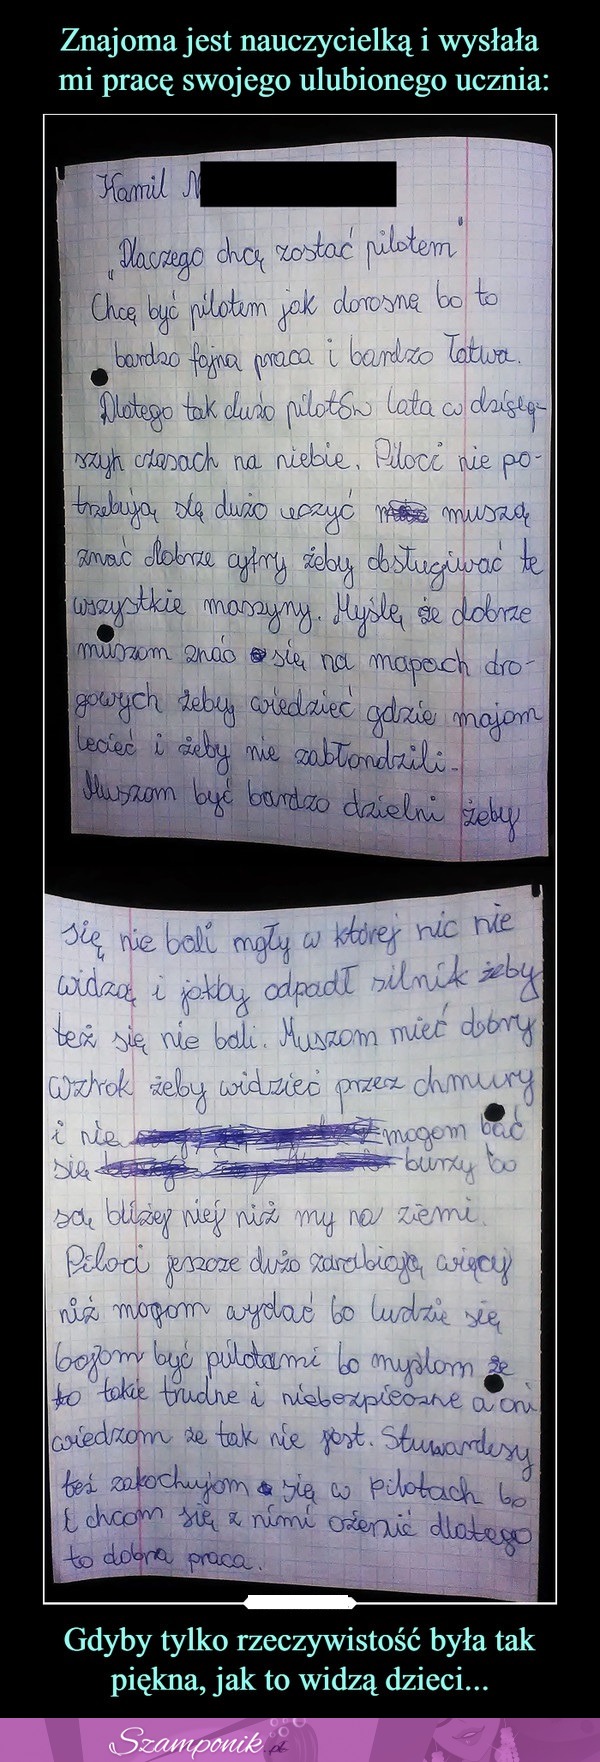 Znajoma jest nauczycielką i wysłała
mi pracę swojego ulubionego ucznia:
Kamil N
„Dlaczego chcę zostać pilotem"
Chcę być pilotem jak dorosnę bo to
bardzo fajna praca i bardzo łatwa.
Dlatego tak dużo pilotów lata w dzisięj-
szyh czasach na niebie. Piloci nie po-
trzebują się dużo uczyć muszą
znać dobrze cyfry żeby obsługiwać te
wszystkie maszyny. Myślę że dobrze
muszom znać się na mapach dro-
gowych żeby wiedzieć gdzie majom
lecieć i żeby nie zabłondzili.
Muszom być bardzo dzielni żeby
się nie bali mgły w której nic nie
widzą i jakby odpadł silnik żeby
też się nie bali. Muszom mieć dobry
wzrok żeby widzieć przez chmury
i nie mogom bać
się burzy bo
są bliżej niej niż my na ziemi.
Piloci jeszcze dużo zarabiają więcej
niż mogom wydać bo ludzie się
bojom być pilotami bo myślom że
to takie trudne i niebezpieczne a oni
wiedzom że tak nie jest. Stuwardesy
też zakochujom się w pilotach bo
chcom się z nimi ożenić dlatego
to dobra praca.
Gdyby tylko rzeczywistość była tak
piękna, jak to widzą dzieci...
Szamponik.pl